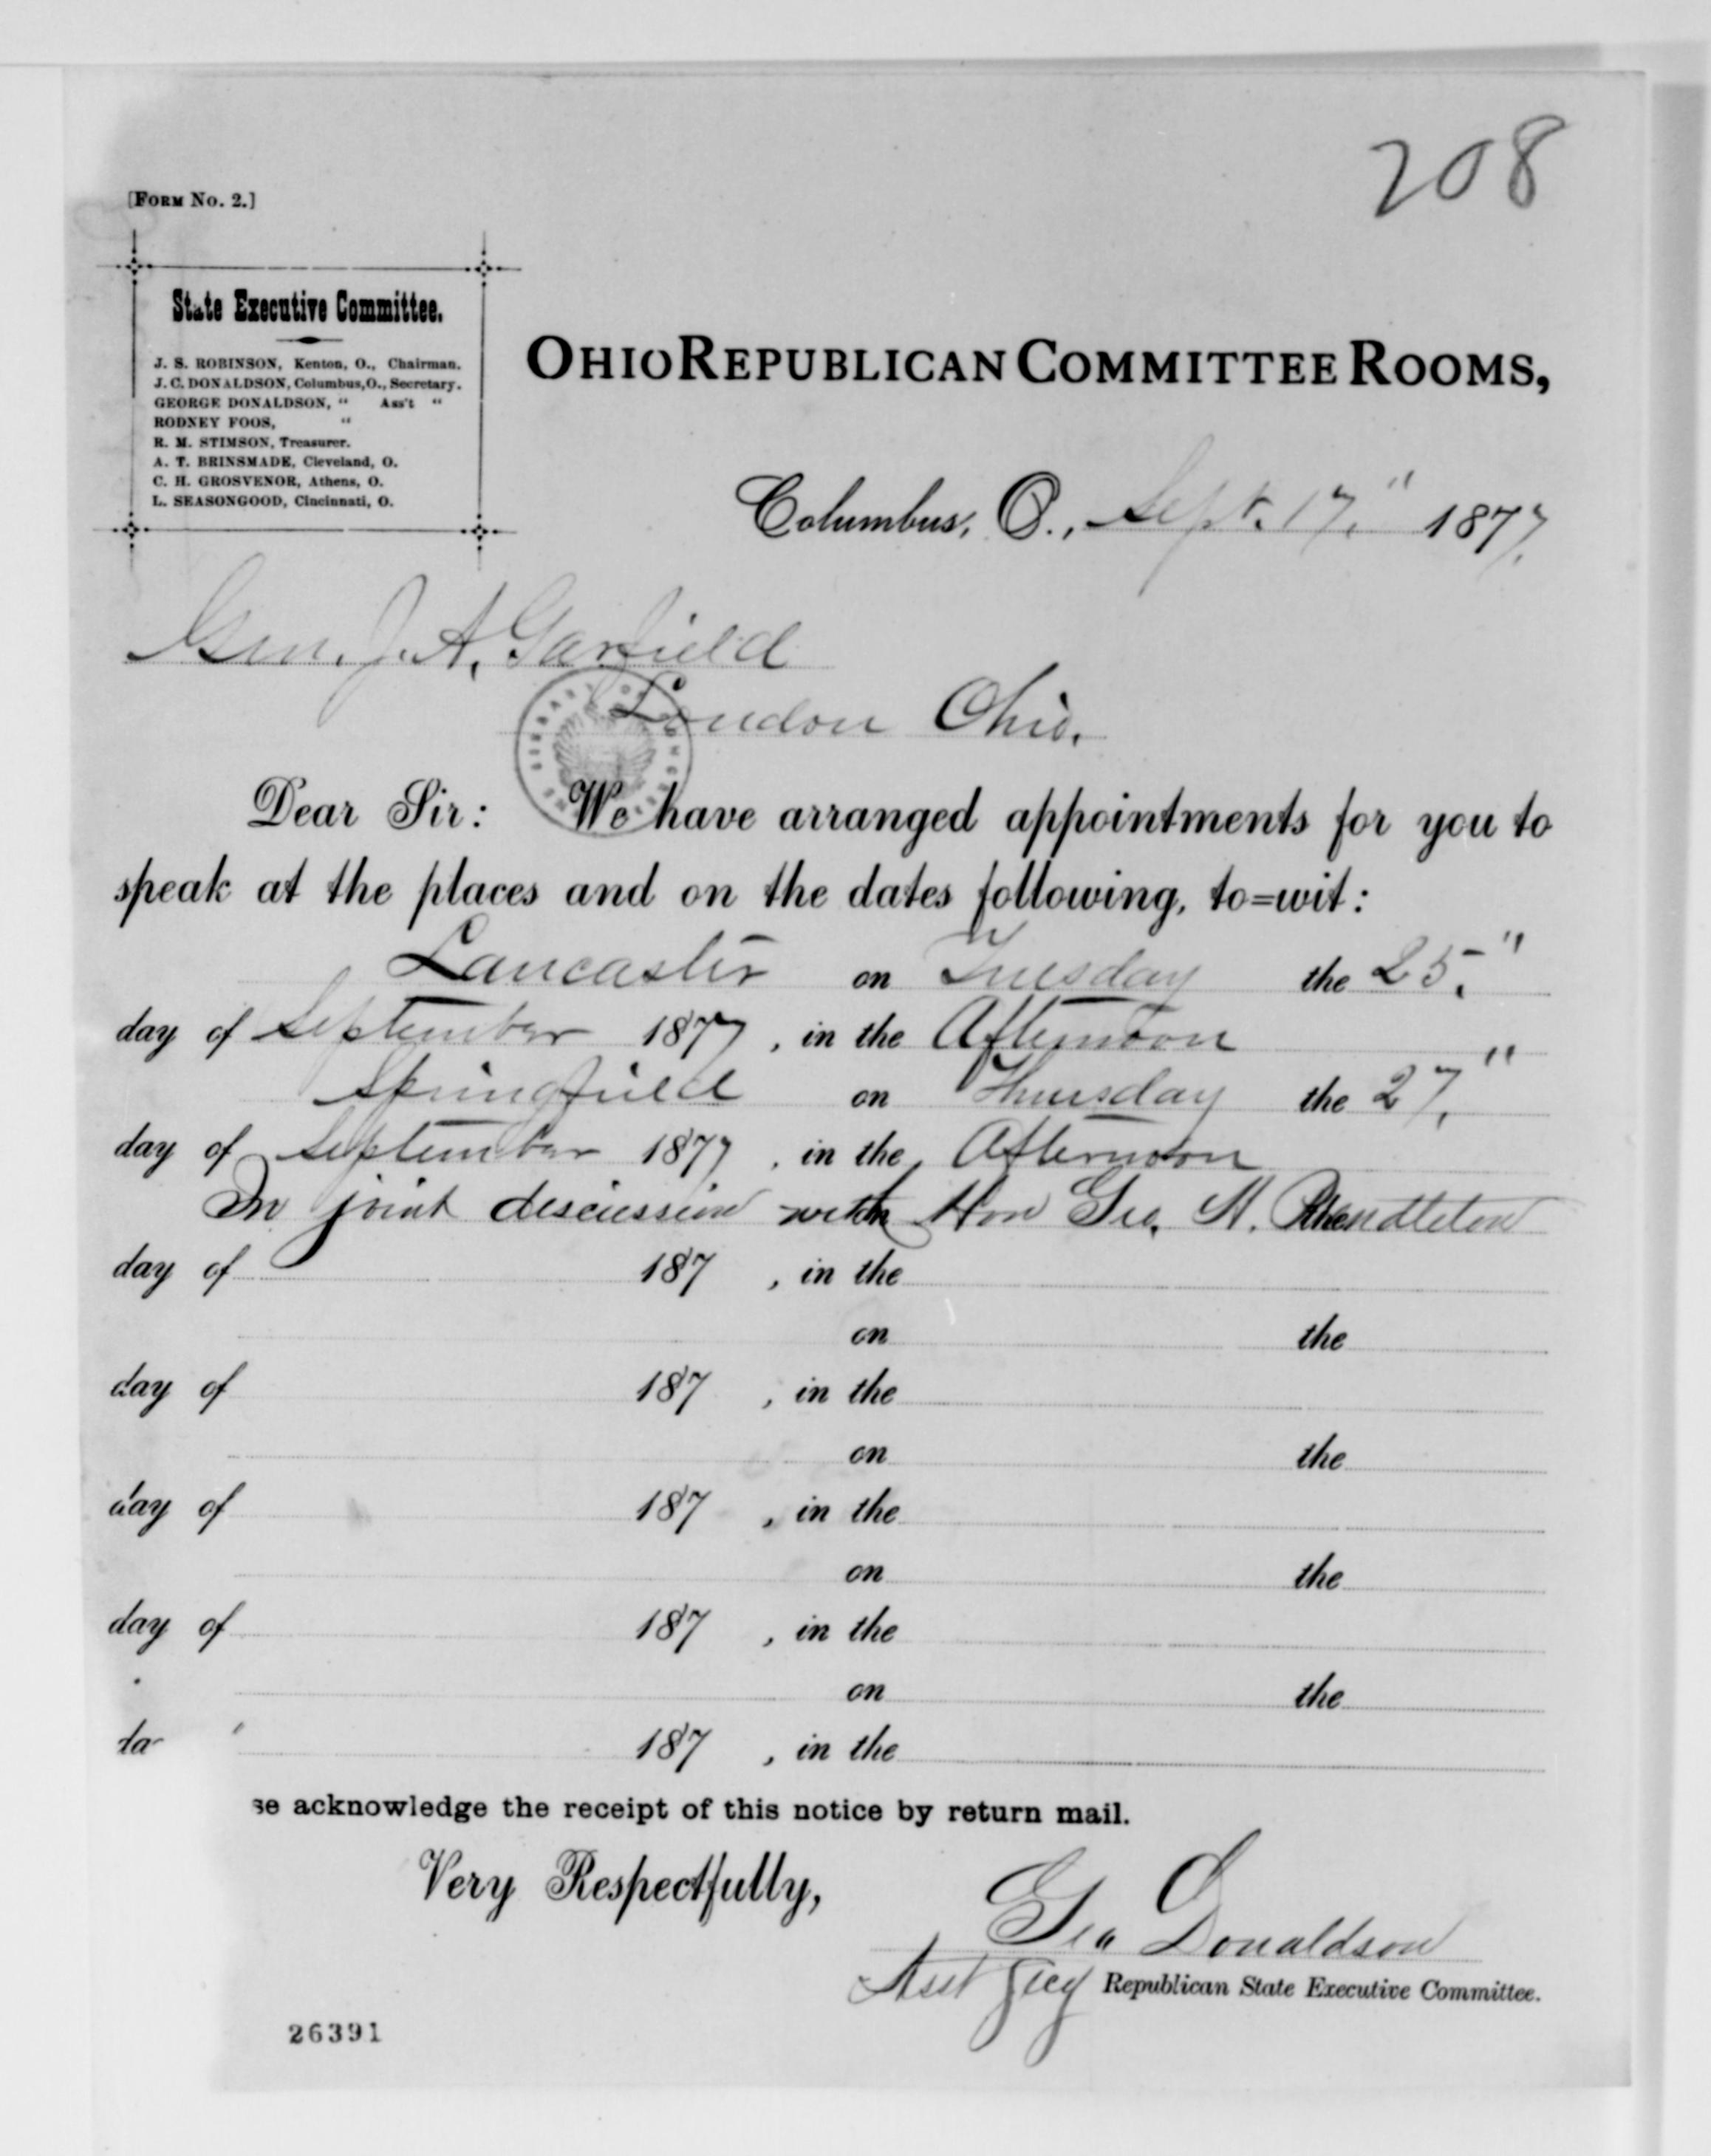 208
[FORM No. 2.]
State Executive Committee.
J. S. ROBINSON, Kenton, O., Chairman.
J. C. DONALDSON, Columbus, O., Secretary.
GEORGE DONALDSON, " Ass't "
RODNEY FOOS, "
R. M. STIMSON, Treasurer.
A. T. BRINSMADE, Cleveland, O.
C. H. GROSVENOR, Athens, O.
L. SEASONGOOD, Cincinnati, O.
OHIO REPUBLICAN COMMITTEE ROOMS,
Columbus, O., Sept. 17." 1877.
Gen. J. A. Garfield
London Ohio.
Dear Sir: We have arranged appointments for you to
speak at the places and on the dates following, to=wit:
Lancaster on Tuesday the 25."
day of September 1877, in the Afternoon
Springfield on Thursday the 27."
day of September 1877, in the Afternoon
In joint discussion with Hon Geo. H. Pendleton
day of 187 , in the
on the
day of 187 , in the
on the
day of 187 , in the
on the
day of 187 , in the
on the
da 187 , in the
se acknowledge the receipt of this notice by return mail.
Very Respectfully,
Geo Donaldson
Asst Secy Republican State Executive Committee.
26391